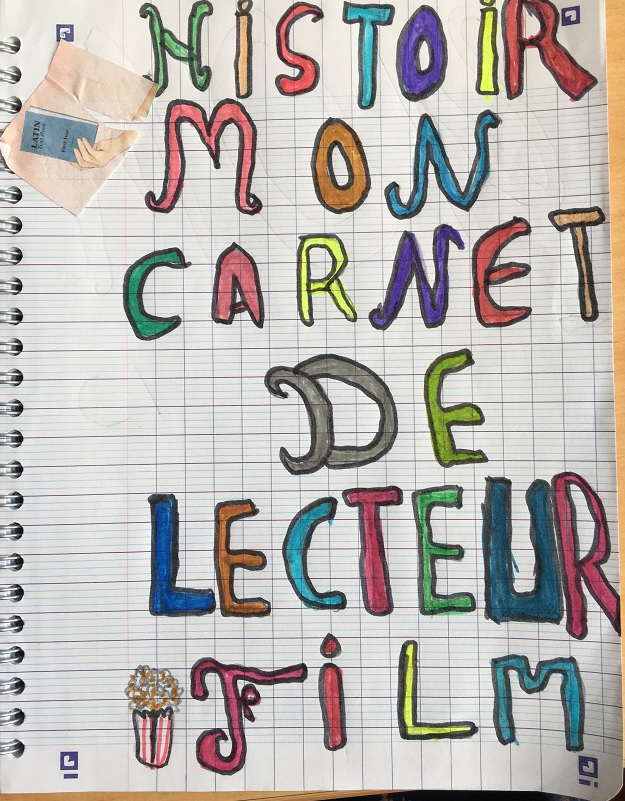 HiSTOiR
MON
CARNET
DE
LECTEUR
FiLM
LATIN